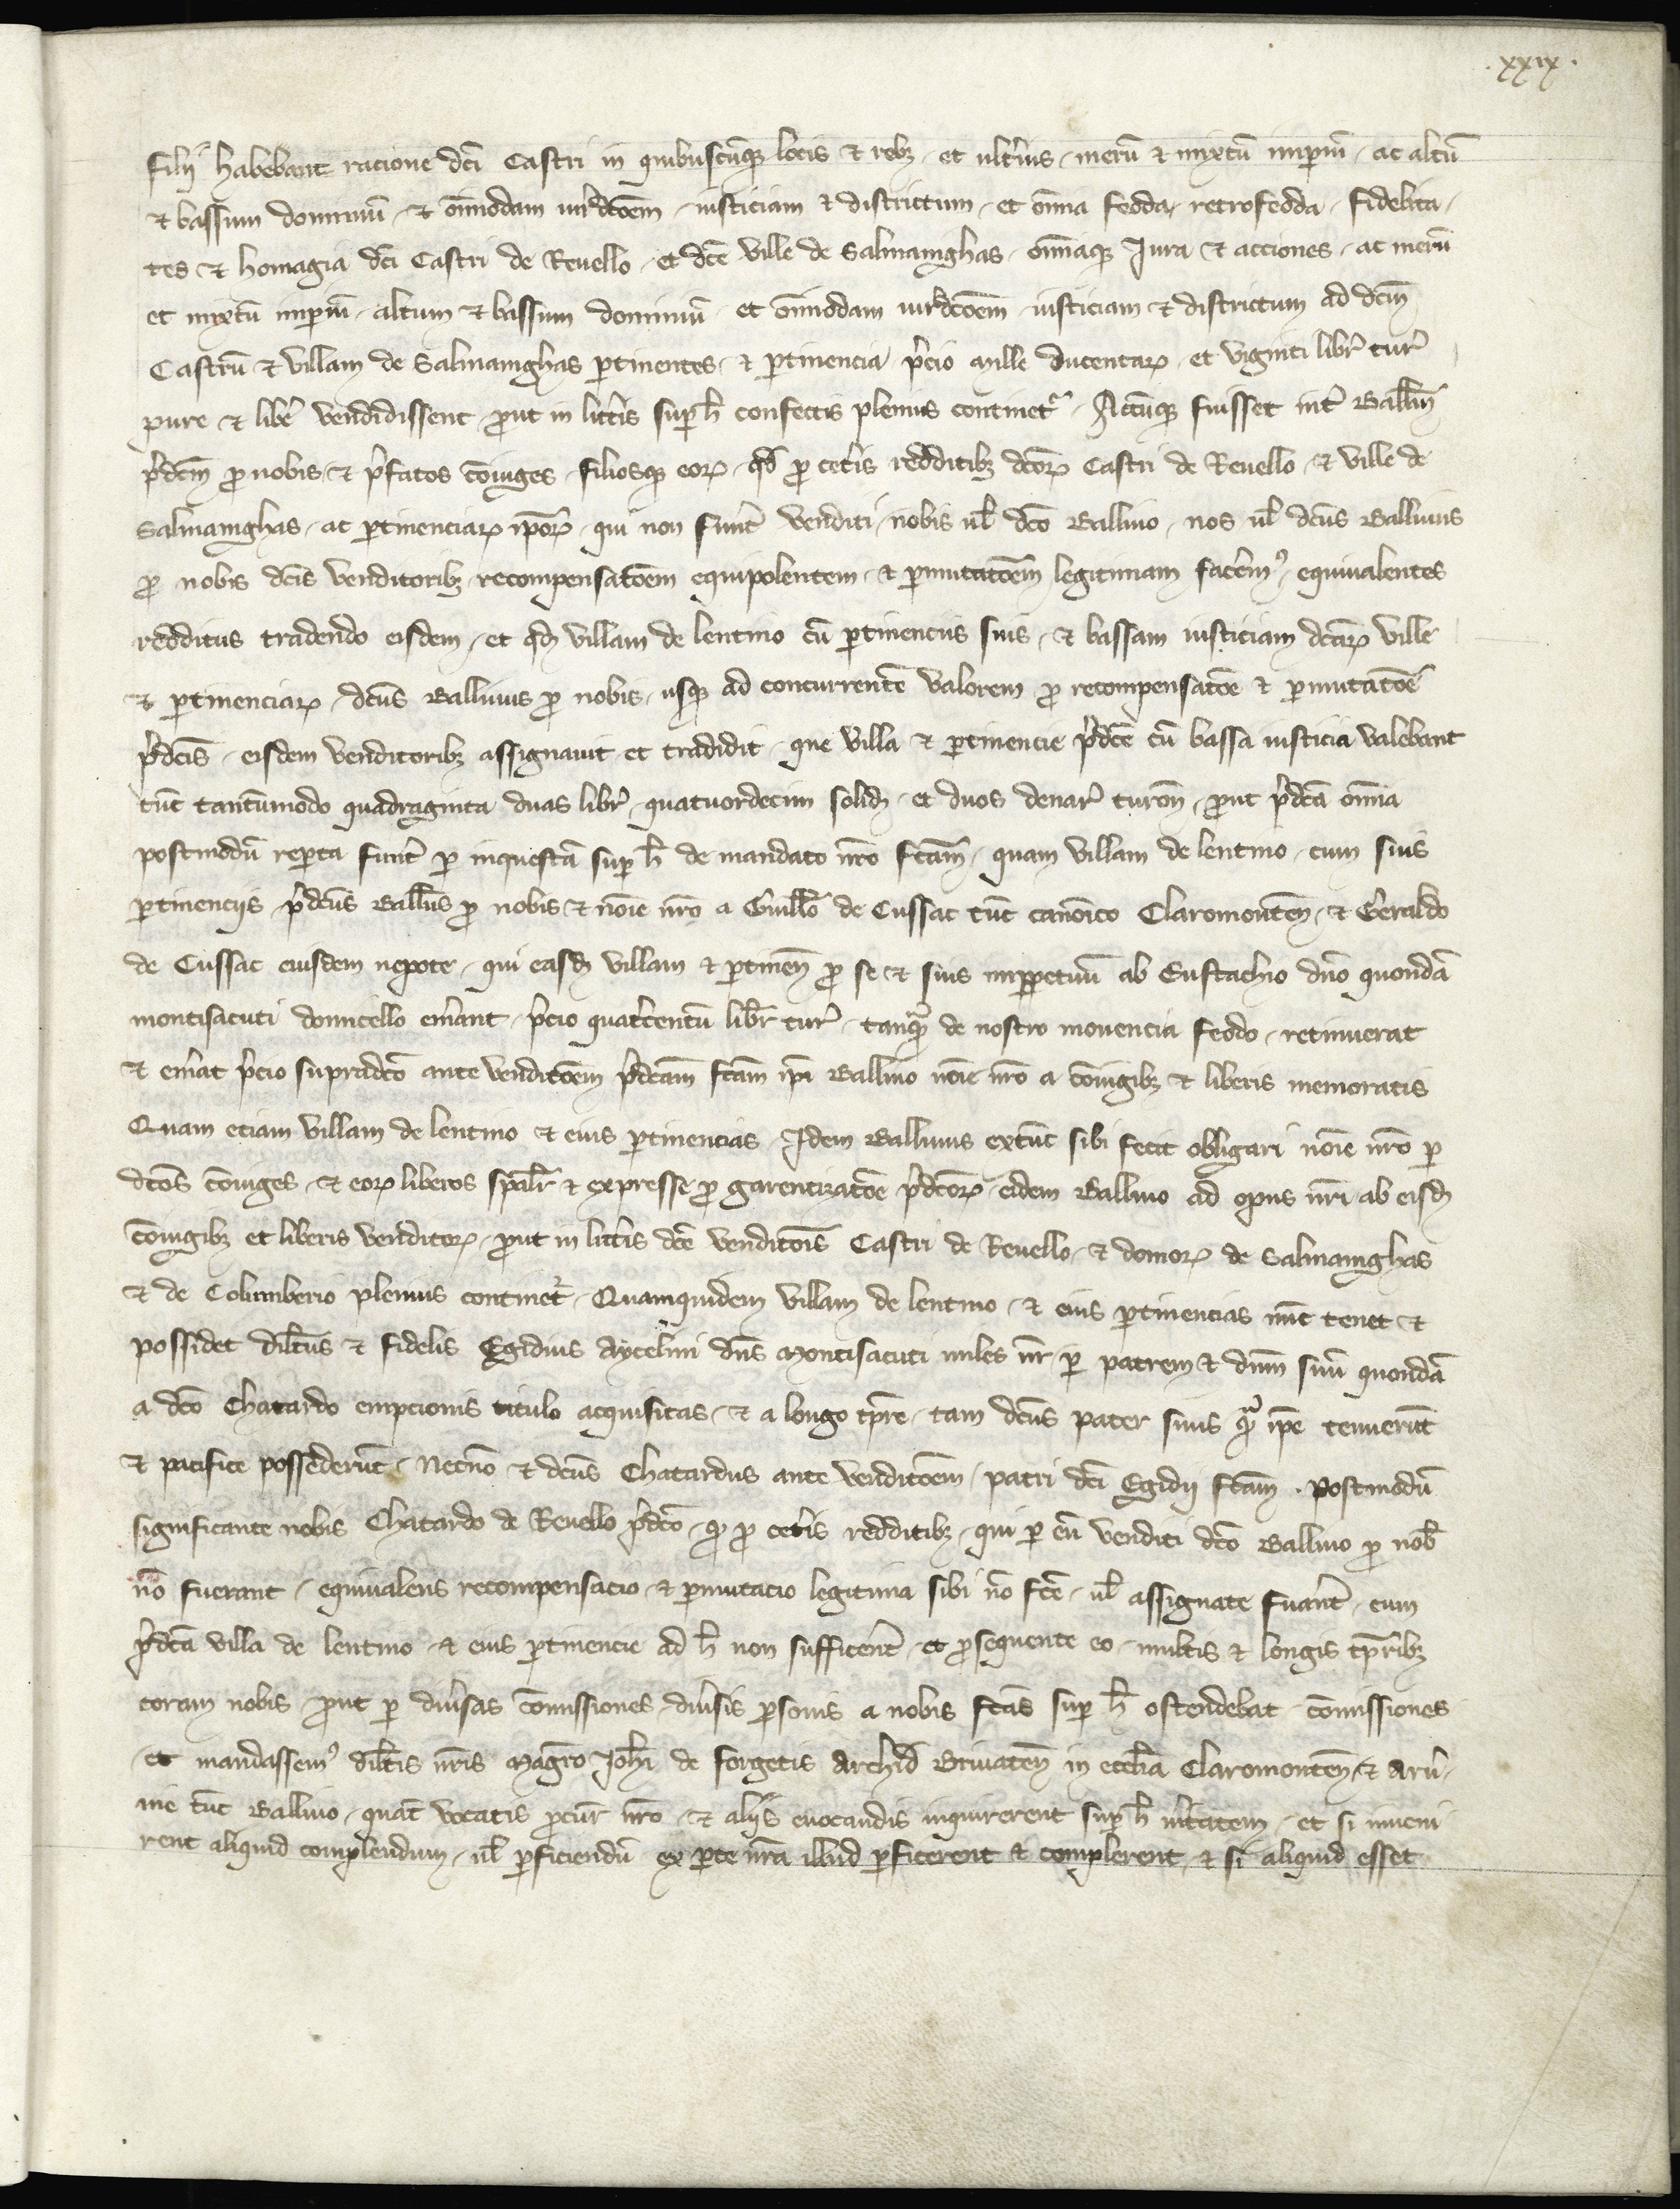 .xxix.
filij habebant racione dc̄i Castri in quibuscūqꝫ locis & rebꝫ et ult̓ius merū & mixtū imꝑiū ac altū
& bassum dominiū & om̄imodam iur̓dcōem iusticiam & districtum et om̄ia feoda retrofeoda fidelita-
tes & homagia dc̄i Castri de Reuello et dc̄e ville de Salmanighas om̄iaqꝫ Jura & acciones ac merū
et mixtū imꝑiū altum & bassum dominiū et om̄imodam iur̓dcōem iusticiam & districtum ad dc̄m
Castrū & villam de Salmanighas ꝑtinentes & ꝑtinencia p̓cio mille ducentaꝝ et viginti libr̓ tur̓
pure & libe̓ vendidissent ꝓut in litt̓is suꝑ h̄ confectis plenius continet᷑ Actūqꝫ fuisset int̓ Ball̄m
p̓dc̄m ꝓ nobis & p̓fatos cōiuges filiosqꝫ eoꝝ qd̄ ꝓ cet̓is redditibꝫ dc̄oꝝ Castri de Reuello & ville de
Salmanighas ac ꝑtinenciaꝝ ip̄oꝝ qui non fu̓nt venditi nobis ul̄ dc̄o Balliuo nos ul̄ dc̄us Balliuus
ꝓ nobis dc̄is venditoribꝫ recompensatōem equipolentem & ꝑmutatōem legitimam face̓mꝰ equiualentes
redditus tradendo eisdem et qd̄ villam de lentino cū ꝑtinenciis suis & bassam iusticiam dc̄aꝝ ville
& ꝑtinenciaꝝ dc̄us Balliuus ꝓ nobis usqꝫ ad concurrentē valorem ꝓ recompensatōe & ꝑmutatōe
p̓dc̄is eisdem venditoribꝫ assignauit et tradidit que villa & ꝑtinencie p̓dc̄e cū bassa iusticia valebant
tūc tantūmodo quadraginta duas libr̓ quatuordecim solid̄ et duos denar̓ turoñ ꝓut p̓dc̄a om̄ia
postmodū reꝑta fu̓nt ꝑ inquestā suꝑ h̄ de mandato nr̄o fc̄am quam villam de lentino cum suis
ꝑtinencijs p̓dc̄us Ball̄us ꝓ nobis & noīe nr̄o a Guill̄o de Cussac tūc canōico Claromonteñ & Geraldo
de Cussac eiusdem nepote qui easd̄ villam & ꝑtineñ ꝓ se & suis imꝑpetuū ab Eustachio dn̄o quondā
montisacuti domicello eme̓ant p̓cio quat̓centū libr̄ tur̓ tanqꝫ de nostro mouencia feodo retinuerat
& eme̓at p̓cio supradc̄o ante venditōem p̓dc̄am fc̄am ip̄i Balliuo noīe nr̄o a cōiugibꝫ & liberis memoratis
Quam eciam villam de lentino & eius ꝑtinencias Idem Balliuus extūc sibi fecit obligari noīe nr̄o ꝑ
dc̄os cōiuges & eoꝝ liberos sp̄alr̄ & expresse ꝓ garentizatōe p̓dc̄oꝝ eidem Balliuo ad opus nr̄i ab eisd̄
cōiugibꝫ et liberis venditoꝝ ꝓut in litt̓is dc̄e venditōis Castri de Reuello & domoꝝ de Salmanighas
& de Columberio plenius continet᷑ Quamquidem villam de lentino & eius ꝑtinencias nūc tenet &
possidet dil̄tus & fidelis Egidius Aycelini dn̄s Montisacuti miles nr̄ ꝑ patrem & dn̄m suū quondā
a dc̄o Chatardo empcionis titulo acquisitas & a longo tp̄re tam dc̄us pater suus qꝫ ip̄e tenuerūt
& pacifice possederūt Necn̄o & dc̄us Chatardus ante venditōem patri dc̄i Egidij fc̄am . Postmodū
significante nobis Chatardo de Reuello p̓dc̄o qꝫ ꝓ cet̓is redditibꝫ qui ꝑ eū venditi dc̄o Balliuo ꝓ nob̄
nō fuerant equiualens recompensacio & ꝑmutacio legitima sibi nō fc̄e ul̄ assignate fue̓ant cum
p̓dc̄a villa de lentino & eius ꝑtinencie ad h̄ non suffice̓nt et ꝓsequente eo multis & longis tp̄ribꝫ
coram nobis ꝓut ꝑ diu̓sas cōmissiones diu̓sis ꝑsonis a nobis fc̄as suꝑ h̄ ostendebat cōmissiones
et mandassemꝰ dil̄tis nr̄is Magr̄o Joh̄i de forgetis Archid̄ Briuateñ in eccl̄ia Claromonteñ & Aru̓-
nie tūc Balliuo quat̄ vocatis ꝓcur̄ nr̄o & aliis euocandis inquirerent suꝑ h̄ u̓itatem et si inueni
rent aliquid complendum ul̄ ꝑficiendū ex ꝑte nr̄a illud ꝑficerent & complerent & si aliquid esset